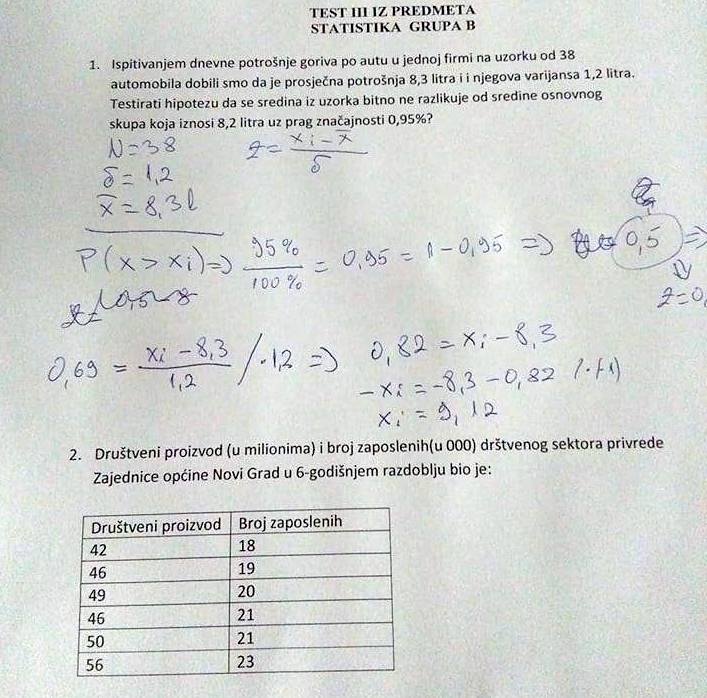 TEST III IZ PREDMETA
STATISTIKA GRUPA B
1. Ispitivanjem dnevne potrošnje goriva po autu u jednoj firmi na uzorku od 38
automobila dobili smo da je prosječna potrošnja 8,3 litra i i njegova varijansa 1,2 litra.
Testirati hipotezu da se sredina iz uzorka bitno ne razlikuje od sredine osnovnog
skupa koja iznosi 8,2 litra uz prag značajnosti 0,95%?
N=38
z = (xi - x̄) / δ
δ = 1,2
x̄ = 8,3 l
P(x > xi) => 95% / 100% = 0,95 = 1 - 0,95 => 0,5 =>
z=0,
0,69 = (xi - 8,3) / 1,2 / ·1,2 => 0,82 = xi - 8,3
-xi = -8,3 - 0,82 /·(-1)
xi = 9,12
2. Društveni proizvod (u milionima) i broj zaposlenih(u 000) drštvenog sektora privrede
Zajednice općine Novi Grad u 6-godišnjem razdoblju bio je:
Društveni proizvod Broj zaposlenih
42 18
46 19
49 20
46 21
50 21
56 23